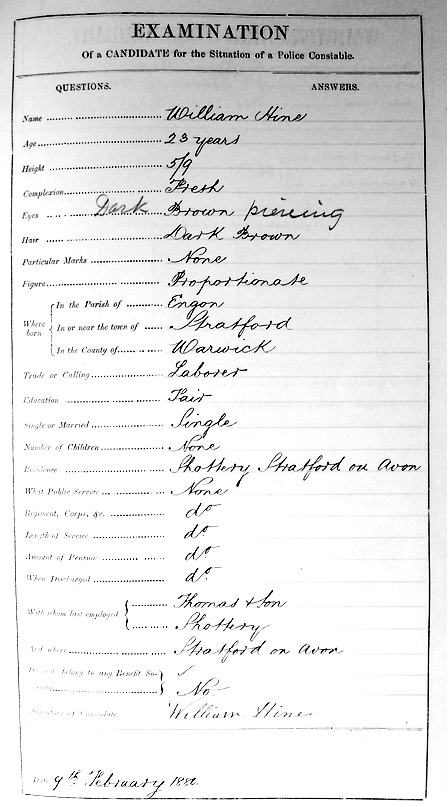 EXAMINATION
Of a CANDIDATE for the Situation of a Police Constable.
QUESTIONS. ANSWERS.
Name William Hine
Age 23 years
Height 5/9
Complexion Fresh
Eyes Dark Brown piercing
Hair Dark Brown
Particular Marks None
Figure Proportionate
Where born
In the Parish of Engon
In or near the town of Stratford
In the County of Warwick
Trade or Calling Laborer
Education Fair
Single or Married Single
Number of Children None
Residence Shottery Stratford on Avon
What Public Service None
Regiment, Corps, &c. do
Length of Service do
Amount of Pension do
When Discharged do
With whom last employed
Thomas & Son
Shottery
And where Stratford on Avon
belong to any Benefit So-
ciety No
Signature of Candidate William Hine
9th February